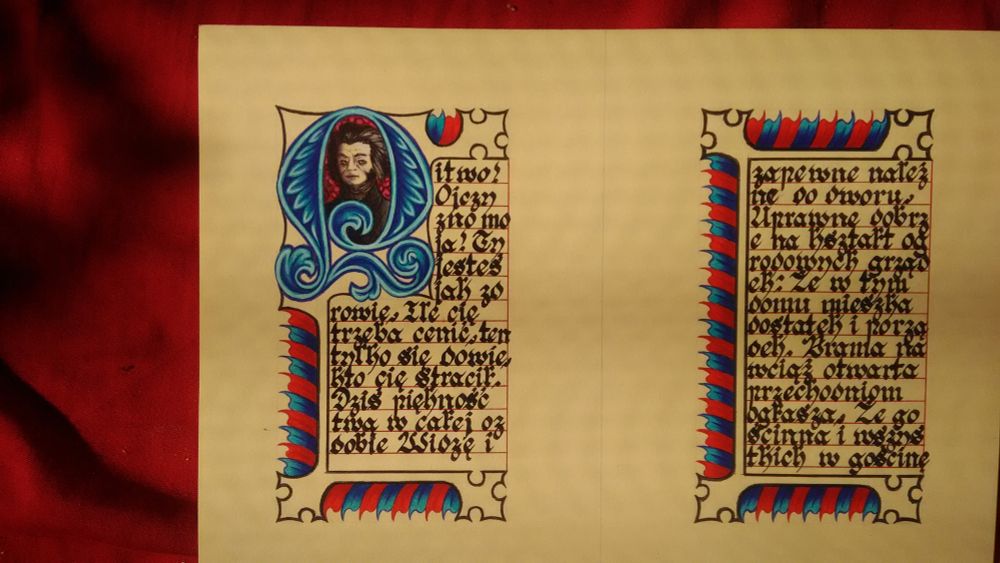 Litwo!
Ojczy
zno mo
ja! Ty
jesteś
jak zd
rowie, Ile cię
trzeba cenić, ten
tylko się dowie,
kto cię stracił.
Dziś piękność
twą w całej oz
dobie Widzę i
zapewne należ
ne do dworu,
Uprawne dobrz
e na kształt og
rodowych grząd
ek: Że w tym
domu mieszka
dostatek i porzą
dek. Brama na
wciąż otwarta
przechodniom
ogłasza, Że go
ścinna i wszys
tkich w gościnę